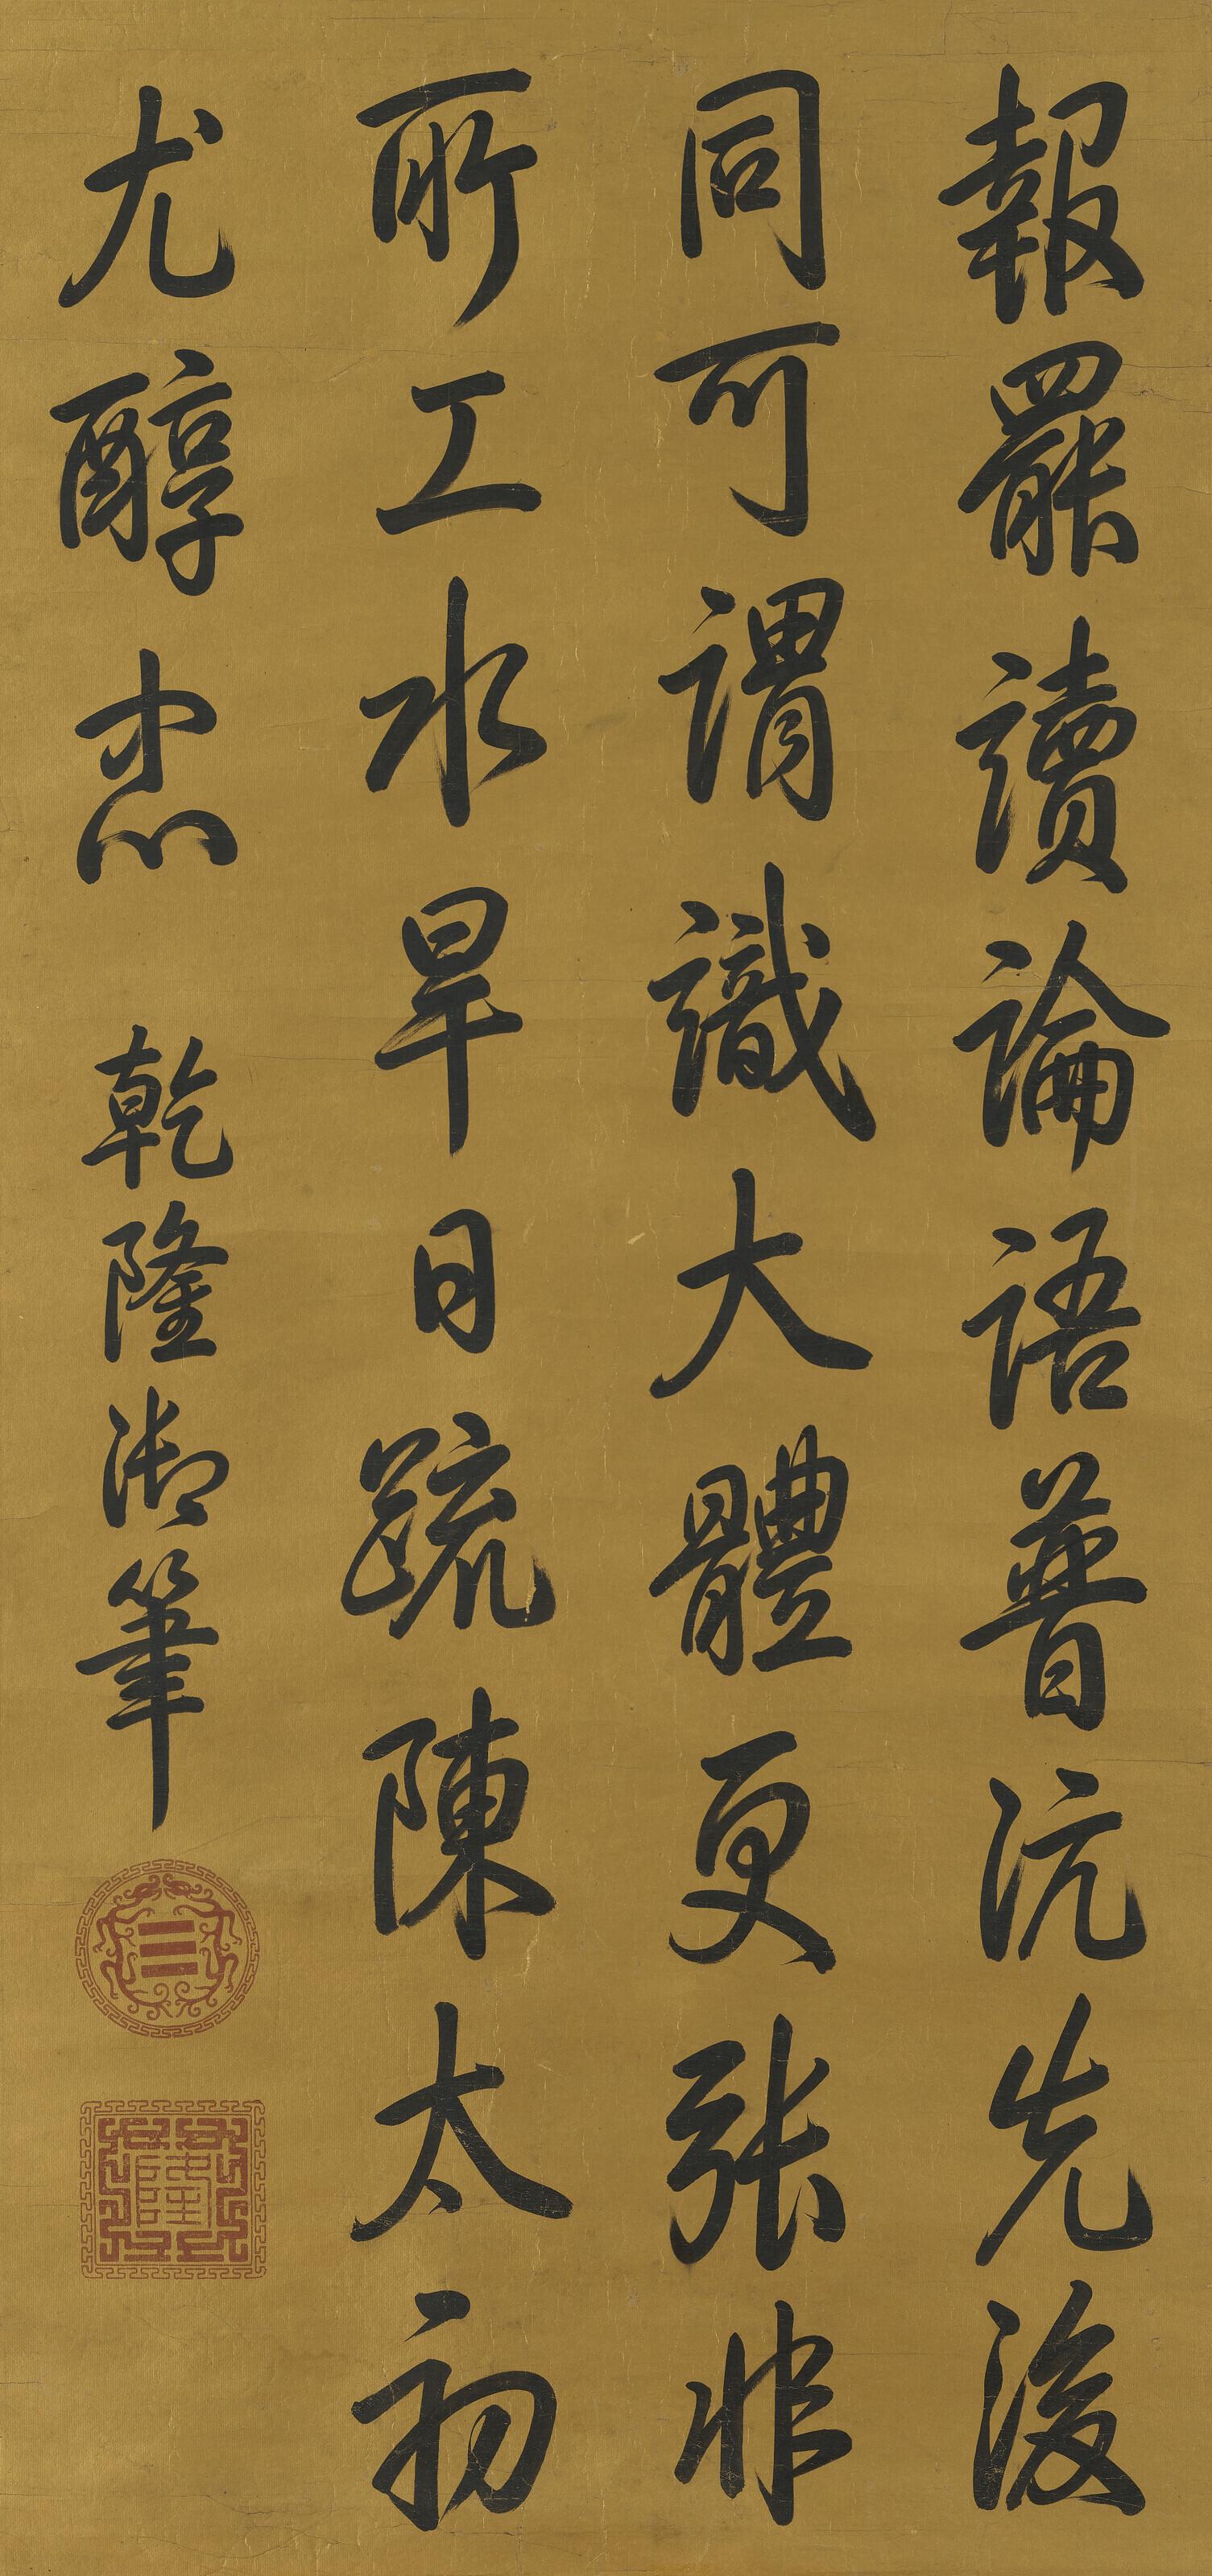 報罷讀論語普沆先後
同可謂識大體更張非
所工水旱日疏陳太初
尤醇忠 乾隆御筆